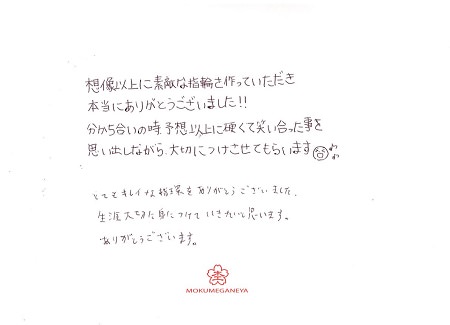 想像以上に素敵な指輪を作っていただき
本当にありがとうございました!!
分かち合いの時、予想以上に硬くて笑い合った事を
思い出しながら、大切につけさせてもらいます
とてもキレイな指環をありがとうございました。
生涯大切に身につけていきたいと思います。
ありがとうございます。
MOKUMEGANEYA